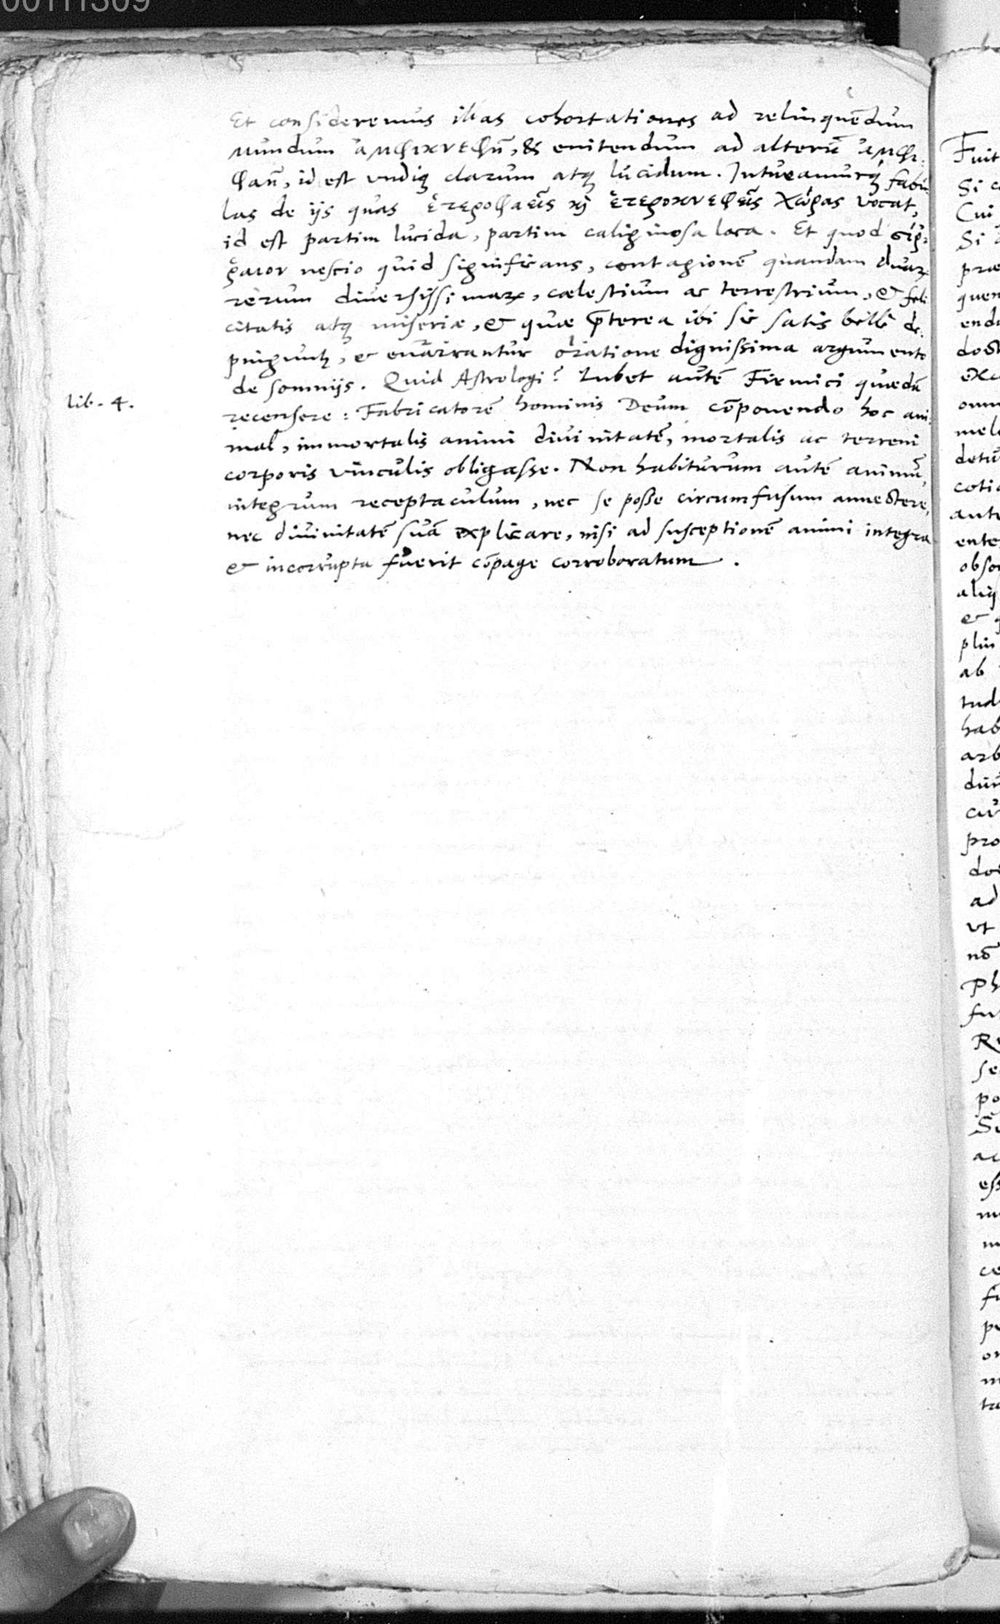 00111309
Et consideremus illas cohortationes ad relinquēdum
mundum ἀμφικνεφῆ, & enitendum ad alterū ἀμφι-
φαῆ, id est undiq; clarum atq; lucidum. Intueamurq; fabu
las de ijs quas ἑτεροφαεῖς κỳ ἑτεροκνεφεῖς χώρας vocat,
id est partim lucida, partim caliginosa loca. Et quod
nescio quid significans, contagionē quandam duar
rerum diversissimarꝝ, cælestium ac terrestrium, & feli
citatis atq; miseriæ, & quæ p̄terea ibi sic satis belle de-
pinguntꝫ, & enarrantur oratione dignissima argumento
de somnijs. Quid Astrologi? Iubet autē Firmici quædā
lib. 4.
recensere: Fabricatorē hominis Deum cōponendo hoc ani
mal, immortalis animi divinitatē, mortalis ac terreni
corporis vinculis obligasse. Non habiturum autē animū
integrum receptaculum, nec se posse circumfusum annectere,
nec divinitatē suā explicare, nisi ad susceptionē animi integra
& incorrupta fuerit cōpage corroboratum.
Fuit
Si
Cui
Si
præ
quem
doct
exc
omn
mel
detu
coti
aute
ente
obsc
aliq
&
plin
ab
tud
hab
arb
cur
pro
doc
ad
vt
nō
Ph
fu
Re
se
po
Se
ac
ess
ce
fu